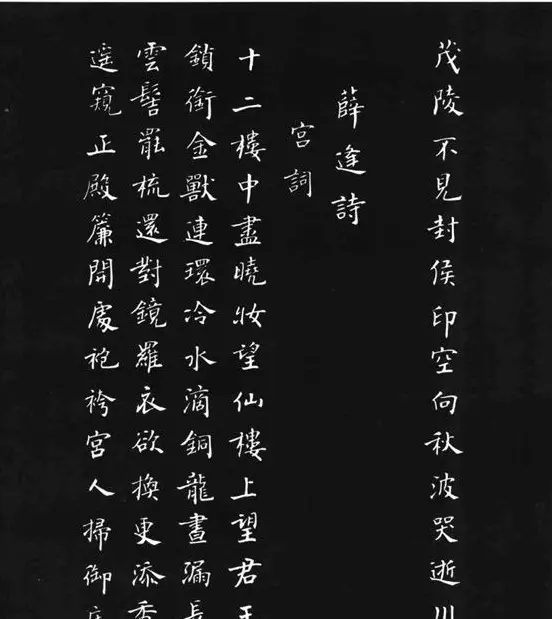 茂陵不見封侯印空向秋波哭逝川
薛逢詩
宮詞
十二樓中盡曉妝望仙樓上望君王
鎖銜金獸連環冷水滴銅龍晝漏長
雲髻罷梳還對鏡羅衣欲換更添香
遥窺正殿簾開處袍袴宮人掃御床